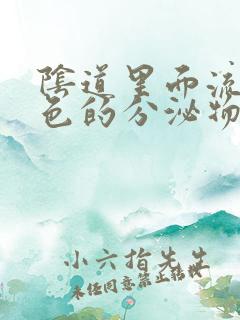 陰道里而流
色的分泌物
小六指先生
未经同意禁止转载